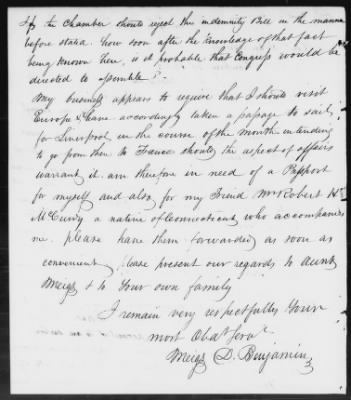 If the Chamber should reject the indemnity Bill in the manner
before stated. how soon after the Knowledge of that fact
being Known here, is it probable that Congress would be
directed to assemble?
My business appears to require that I should visit
Europe & have accordingly taken a passage to sail
for Liverpool in the course of the month intending
to go from there to France should the aspect of affairs
warrant it. am therefore in need of a Passport
for myself and also for my friend Mr Robert H
McCurdy a native of Connecticut who accompanies
me. please have them forwarded as soon as
convenient please present our regards to Aunt
Meigs & to Your own family
I remain very respectfully Your
most Obdt Servt
Meigs D. Benjamin